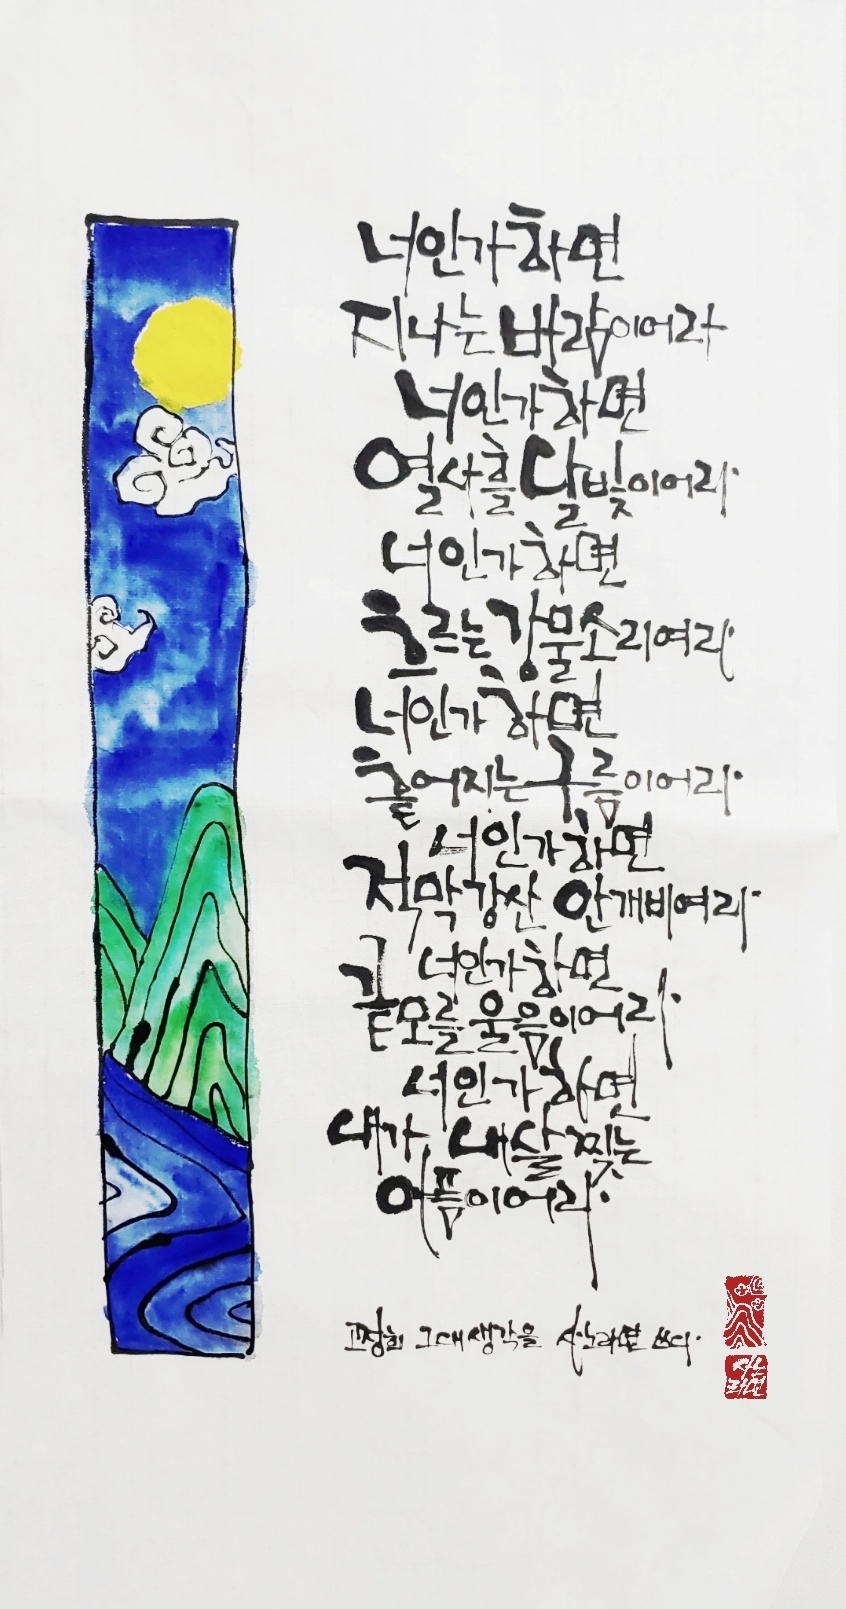 너인가 하면
지나는 바람이어라
너인가 하면
열사흘 달빛이어라
너인가 하면
흐르는 강물소리여라
너인가 하면
흩어지는 구름이어라
너인가 하면
적막강산 안개비여라
너인가 하면
끝모를 울음이어라
너인가 하면
내가 내 살 찢는
아픔이어라
고정희 그대생각을 산라면 쓰다